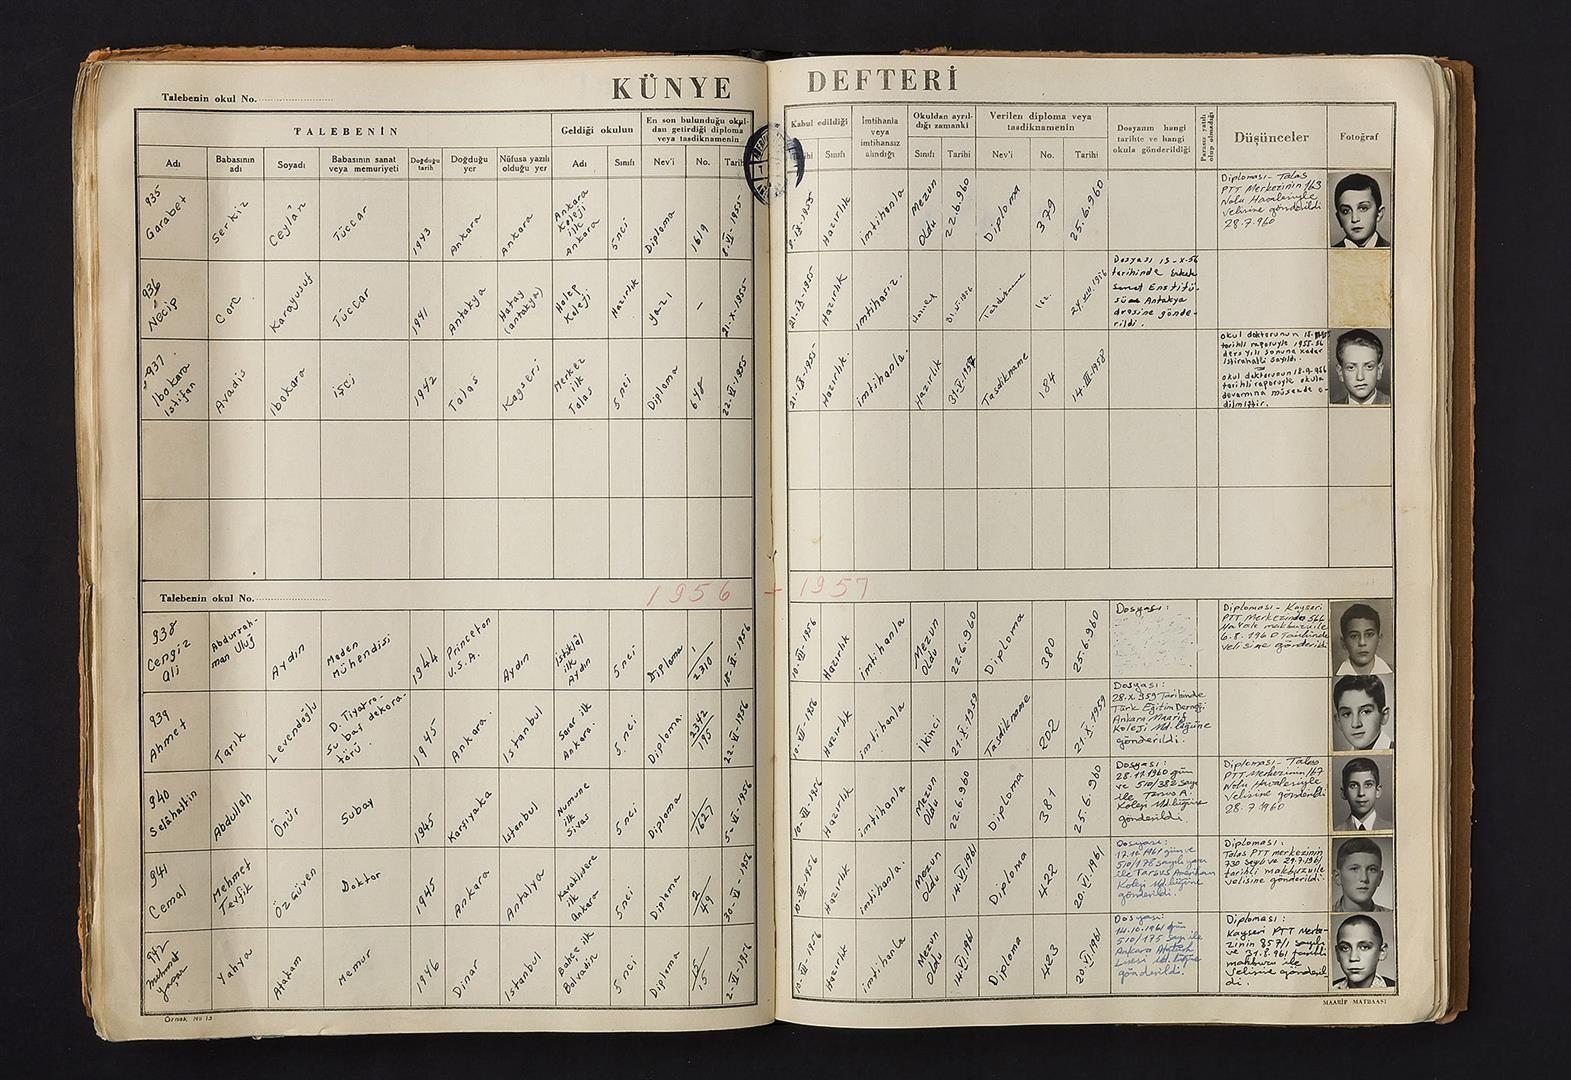 KÜNYE DEFTERİ
Talebenin okul No.
TALEBENİN
Geldiği okulun
En son bulunduğu okul-
dan getirdiği diploma
veya tasdiknamenin
Kabul edildiği
İmtihanla
veya
imtihansız
alındığı
Okuldan ayrıl-
dığı zamanki
Verilen diploma veya
tasdiknamenin
Dosyanın hangi
tarihte ve hangi
okula gönderildiği
Parasız yatılı
olup olmadığı
Düşünceler
Fotoğraf
Adı
Babasının
adı
Soyadı
Babasının sanat
veya memuriyeti
Doğduğu
tarih
Doğduğu
yer
Nüfusa yazılı
olduğu yer
Adı
Sınıfı
Nev'i
No.
Tarihi
Sınıfı
Sınıfı
Tarihi
Nev'i
No.
Tarihi
935
Garabet
Serkiz
Ceylân
Tüccar
1943
Ankara
Ankara
Ankara
Koleji
ilk
Ankara
5nci
Diploma
1619
8-VI-1955
Hazırlık
imtihanla
Mezun
Oldu
22.6.960
Diploma
379
25.6.960
Diploması - Talas
PTT Merkezinin 163
Nolu Havalesiyle
velisine gönderildi
28-7-960
936
Necip
Corc
Karayusuf
Tüccar
1941
Antakya
Hatay
(antakya)
Halep
Koleji
Hazırlık
yazı
-
21-X-1955
21-IX-1955
Hazırlık
imtihansız.
Dosyası 15-X-56
tarihinde Erkek
Sanat Enstitü-
süne Antakya
dresine gönde-
rildi.
937
Ibokara
Istifan
Avadis
Ibokara
işçi
1942
Talas
Kayseri
Merkez
ilk
Talas
5nci
Diploma
648
22-VI-1955
21-IX-1955
Hazırlık.
imtihanla.
Hazırlık
Tasdikname
184
14-III-1958
Okul doktorunun
tarihli raporuyla 1955-56
ders yılı sonuna kadar
istirahatli sayıldı.
okul doktorunun 18.9.956
tarihli raporuyla okula
devamına müsaade e-
dilmiştir.
Talebenin okul No.
1956 - 1957
938
Cengiz
Ali
Abdurrah-
man Uluğ
Aydın
Maden
Mühendisi
1944
Princeton
U.S.A.
Aydın
İstiklâl
ilk
Aydın
5nci
Diploma
1/2310
18-VI-1956
Hazırlık
imtihanla
Mezun
Oldu
22-6-960
Diploma
380
25.6.960
Dosyası:
Diploması - Kayseri
PTT Merkezinde 566
Havale makbuzu ile
6.8.1960 Tarihinde
velisine gönderildi
939
Ahmet
Tarık
Levendoğlu
D. Tiyatro-
su baş dekora-
törü.
1945
Ankara
İstanbul
Sarar ilk
Ankara.
5nci
Diploma.
2342/175
22-VI-1956
Hazırlık
imtihanla
İkinci
21-X-1959
Tasdikname
202
21.X.1959
Dosyası:
28.X.959 Tarihinde
Türk Eğitim Derneği
Ankara Maarif
Koleji Md.lüğüne
gönderildi.
940
Selâhattin
Abdullah
Önür
Subay
1945
Karşıyaka
İstanbul
Numune
ilk
Sivas
5nci
Diploma
1/1627
5-VI-1956
Hazırlık
imtihanla
Mezun
Oldu
22.6.960
Diploma
381
25.6.960
Dosyası:
28.11.1960 gün
ve 510/382 sayı
ile Tarsus A.
Koleji Md.lüğüne
gönderildi.
Diploması - Talas
PTT Merkezinin 167
Nolu Havalesiyle
velisine gönderildi
28.7.1960
941
Cemal
Mehmet
Tevfik
Özgüven
Doktor
1945
Ankara
Antalya
Kavaklıdere
ilk
Ankara
5nci
Diploma
2/49
30-VI-1956
Hazırlık
imtihanla.
Mezun
Oldu
14-VI.961
Diploma
422
20.VI.1961
Dosyası:
17.10.1961 gün ve
510/178 sayılı yazı
ile Tarsus Amerikan
Koleji Md.lüğüne
gönderildi.
Diploması:
Talas PTT merkezinin
730 sayılı ve 29.7.1961
tarihli makbuzu ile
velisine gönderildi.
942
Mehmet
Yaşar
Yahya
Atakam
Memur
1946
Dinar
İstanbul
Bahçe ilk
Bolvadin
5nci
Diploma
15/15
2-VI-1956
Hazırlık
imtihanla
Mezun
Oldu
14-VI.1961
Diploma
423
20.VI.1961
Dosyası:
14.10.1961 gün
510/175 sayı ile
Ankara Atatürk
Lisesi Md.lüğüne
gönderildi.
Diploması:
Kayseri PTT Merke-
zinin 857/1 sayılı
ve 31.8.961 tarihli
makbuzu ile
velisine gönderil
di.
Örnek No 13
MAARİF MATBAASI